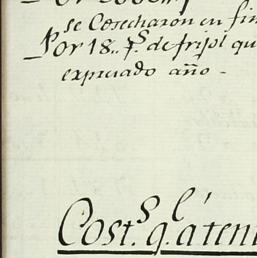 se Coрecharon en fin
Por 18.. f.s de frijol qu
expresado año -
Cost.s q.l atien